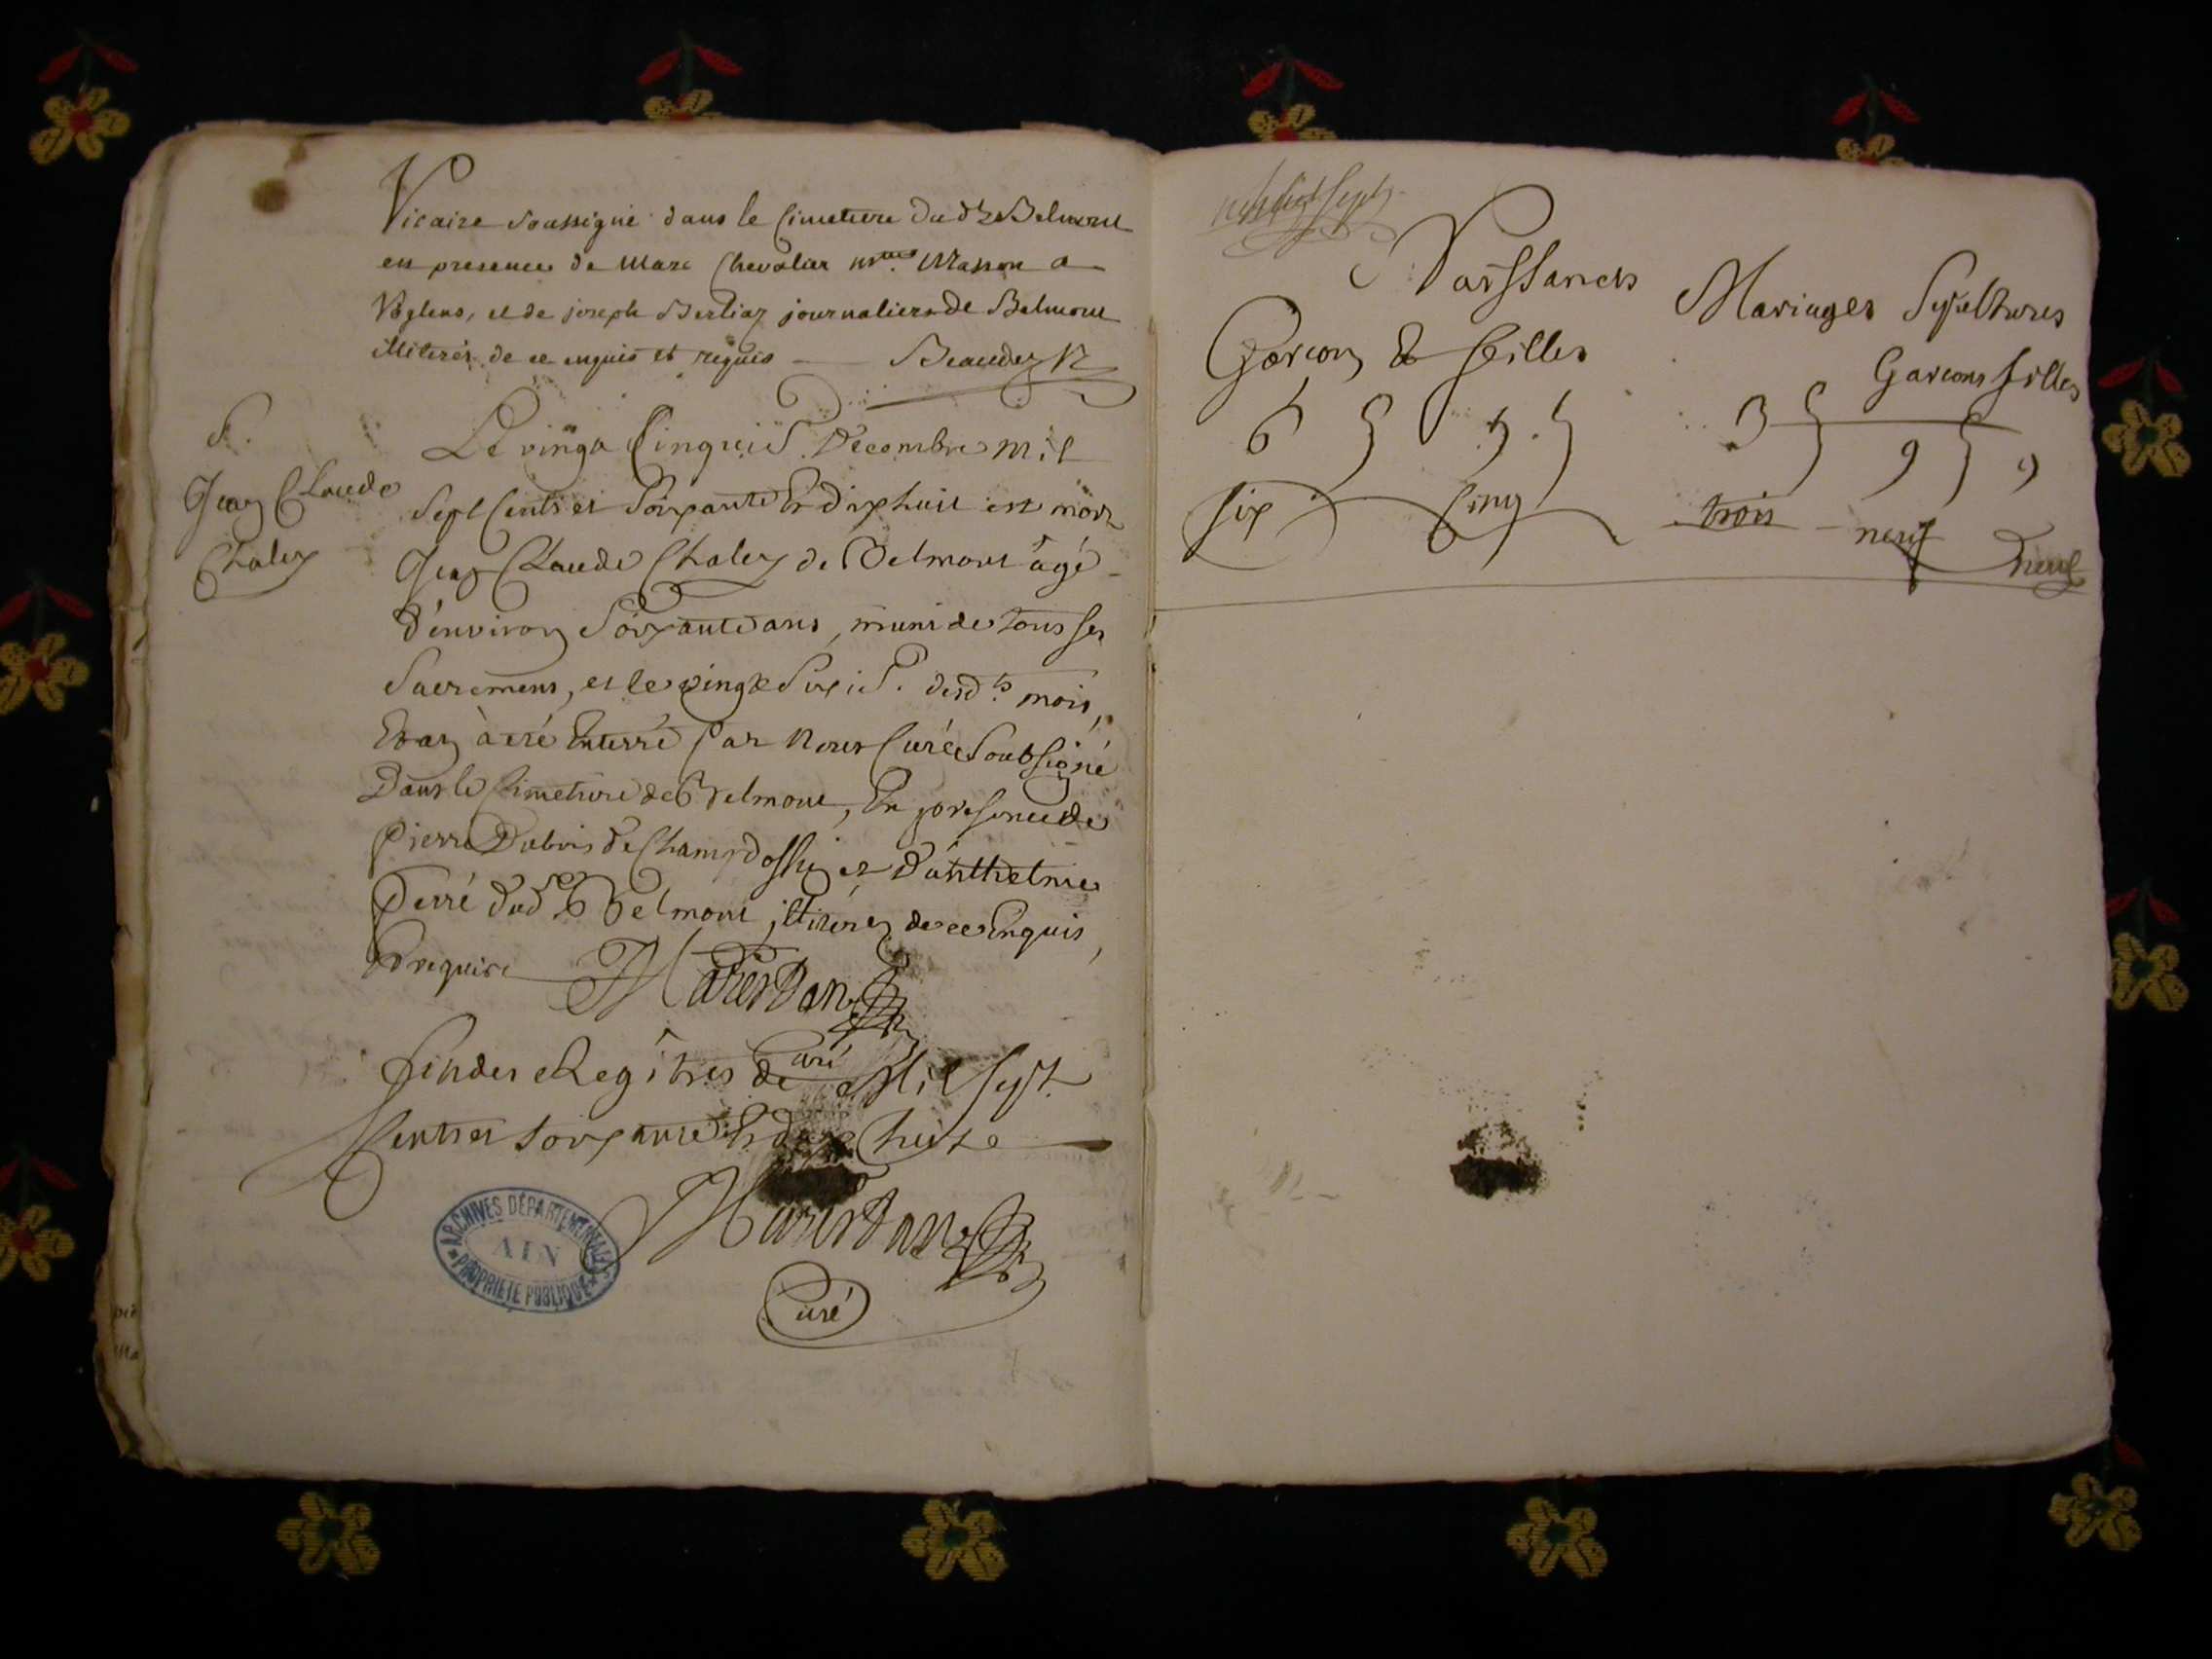 Vicaire soussigné dans le cimetiere du dt Belmont
en presence de Marc Chevalier Masson a
Voglens, et de joseph Berliaz journaliers de Belmont
illiterés de ce enquis et requis
S.
Jean Claude
Chaley
Le vingt Cinquie. Decembre mil
Sept Cents et Soixante Et dix huit est mort
Jean Claude Chaley de Belmont âgé
d'environ Soixante ans, muni de tous ses
Sacremens, et le vingt Sixie. desdts mois,
Et an à eté Enterré par Nous Curé Soubsigné
Dans le Cimetiere de Belmont, En presence de
Pierre Dubois de Champdossin et D'anthelme
Perré dud. Belmont, illiterez de ce Enquis,
Et requis
Curé
fin des Regîtres de Mil Sept
Cents et soixante Et dix huite
Curé
ARCHIVES DÉPARTEMENTALES
AIN
PROPRIÉTÉ PUBLIQUE
Naissances Mariages Sepultures
Garçons & filles Garçons filles
6 5 3 9 9
six Cinq trois neuf neuf